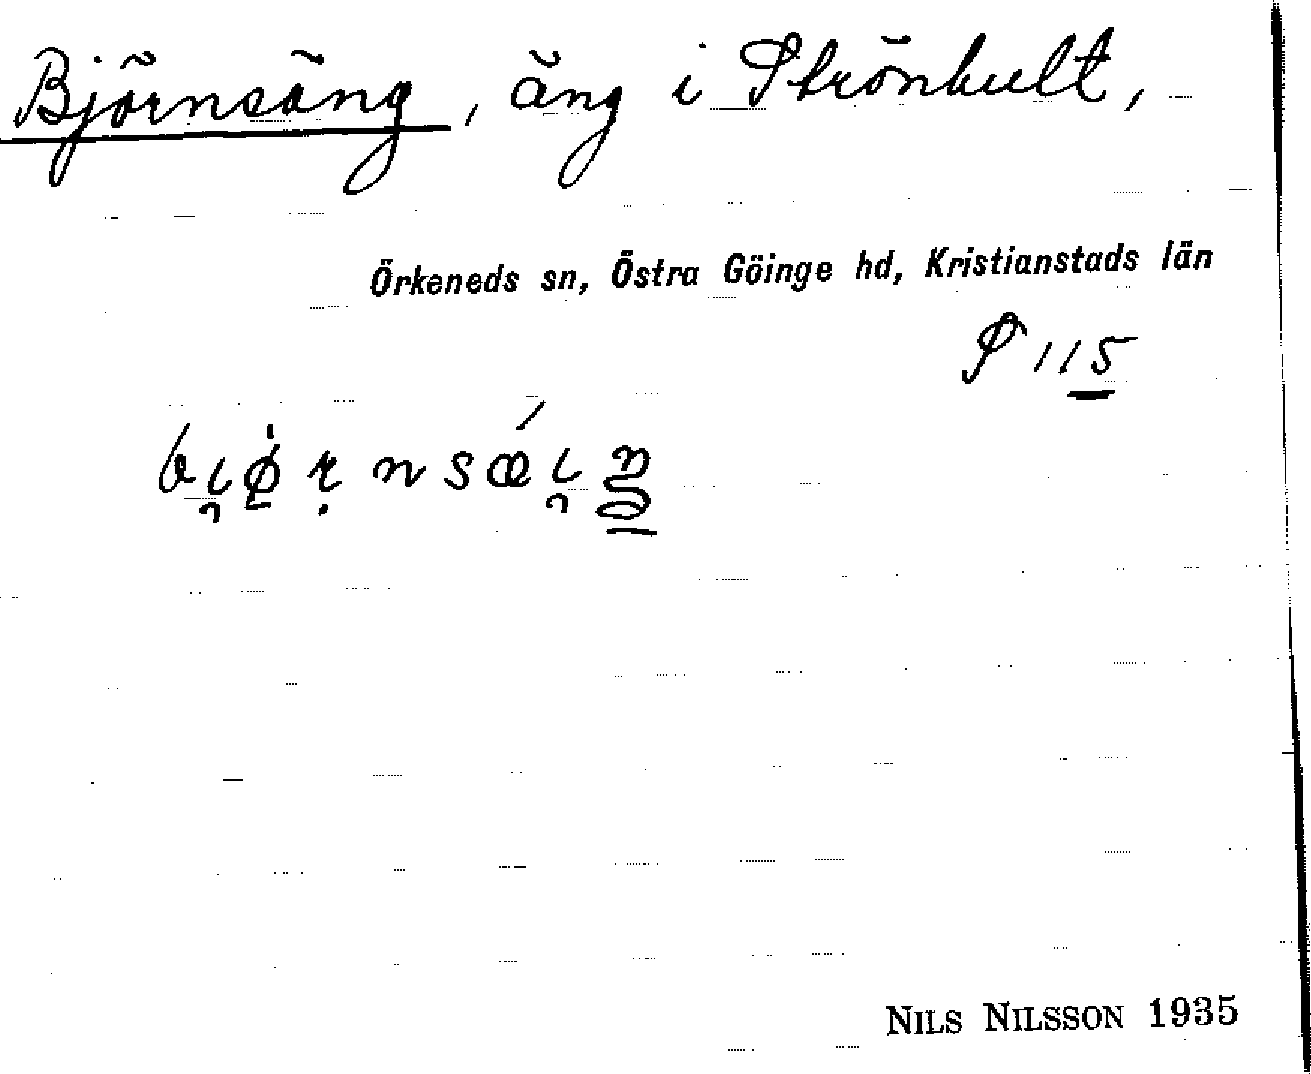 Björnsäng, äng i Strönhult,
Örkeneds sn, Östra Göinge hd, Kristianstads län
P 115
NILS NILSSON 1935